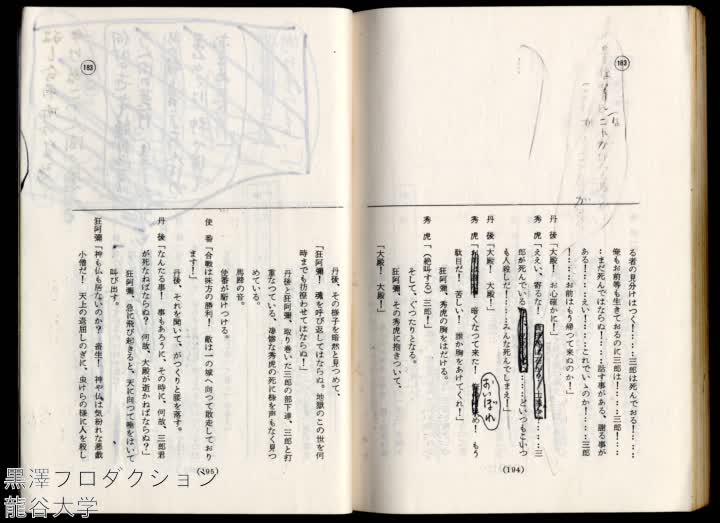 183
る者の見分けはつく!……三郎は死んでおる!……
俺もお前等も生きておるのに三郎は!……三郎!……
……まだ死んではならぬ!……話す事がある、謝る事が
ある!……えい!……これでいゝのか!……三郎
!……お前はもう帰つて来ぬのか!」
丹後「大殿! お心確かに!」
秀虎「ええい、寄るな!……三
郎が死んでいる……どいつもこいつ
も人殺しだ!……みんな死んでしまえ!」
丹後「大殿! 大殿!」
秀虎「暗くなつて来た! め! もう
おいぼれ
駄目だ! 苦しい! 誰か胸をあけてくれ!」
狂阿彌、秀虎の胸をはだける。
秀虎「(絶叫する)三郎!」
そして、ぐつたりとなる。
狂阿彌、その秀虎に抱きついて、
「大殿! 大殿!」
(194)
183
丹後、その様子を暗然と見つめて、
「狂阿彌! 魂を呼び返してはならぬ。地獄のこの世を何
時までも彷徨わせてはならぬ!」
丹後と狂阿彌、取り巻いた三郎の部下達、三郎と打
重なつている、凄惨な秀虎の死に様を声もなく見つ
めている。
馬蹄の音。
使番が駈けつける。
使番「合戦は味方の勝利! 敵は一の城へ向つて敗走しており
ます!」
丹後、それを聞いて、がつくりと膝を落す。
丹後「なんたる事! 事もあろうに、その時に、何故、三郎君
が死なねばならぬ? 何故、大殿が逝かねばならぬ?」
狂阿彌、急に飛び起きると、天に向つて唾をはいて
叫び出す。
狂阿彌「神も仏も居ないのか? 畜生! 神や仏は気紛れな悪戯
小僧だ! 天上の退屈しのぎに、虫けらの様に人を殺し
(195)
黒澤プロダクション
龍谷大学